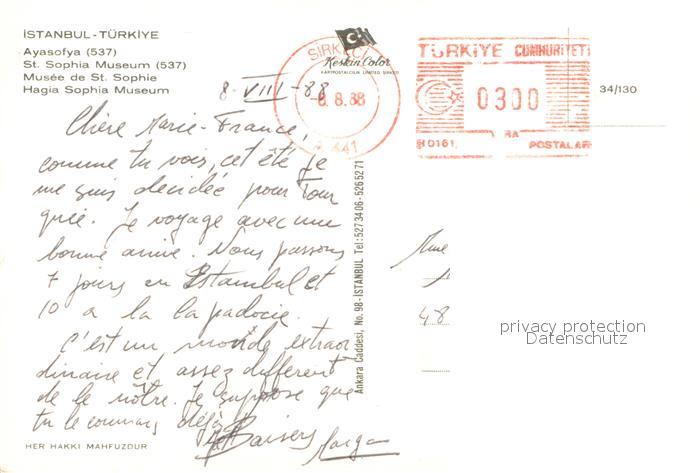 İSTANBUL-TÜRKİYE
Ayasofya (537)
St. Sophia Museum (537)
Musée de St. Sophie
Hagia Sophia Museum
8-VIII-88
Chère Marie-France,
comme tu vois, cet été je
me suis decidée pour Tour
quie. Je voyage avec une
bonne amie. Nous passons
7 jours en Istambul et
10 a la Capadocie.
C'est un monde extraor
dinaire et assez different
de le nôtre. Je suppose que
tu le connais déjà.
Baisers
HER HAKKI MAHFUZDUR
Keskin Color
KARTPOSTALCILIK LIMITED ŞİRKETİ
Ankara Caddesi, No. 98-İSTANBUL Tel: 527 3406-526 5271
SİRKECİ
8.8.88
TÜRKİYE CUMHURİYETİ
0300
POSTALAR
34/130
Mme
48
privacy protection
Datenschutz